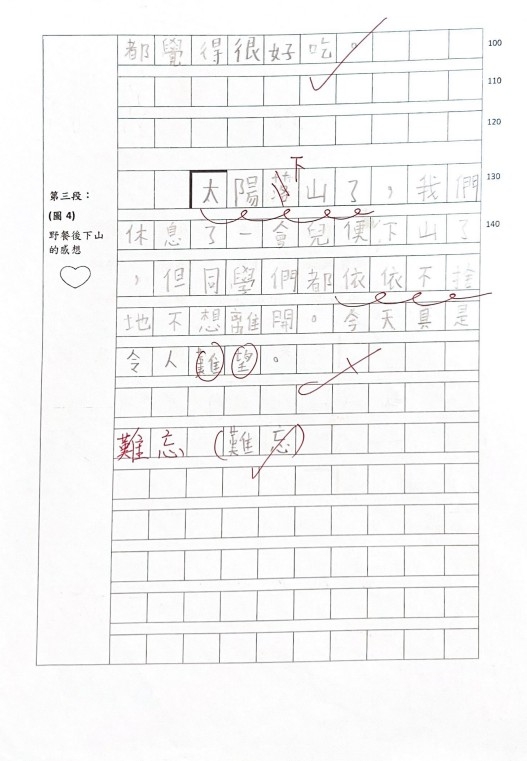 都覺得很好吃。
100
110
120
下
太陽落山了，我們
130
第三段：
(圖 4)
野餐後下山
的感想
休息了一會兒便下山了
140
，但同學們都依依不捨
地不想離開。今天真是
令人難望。
難忘（難忘）